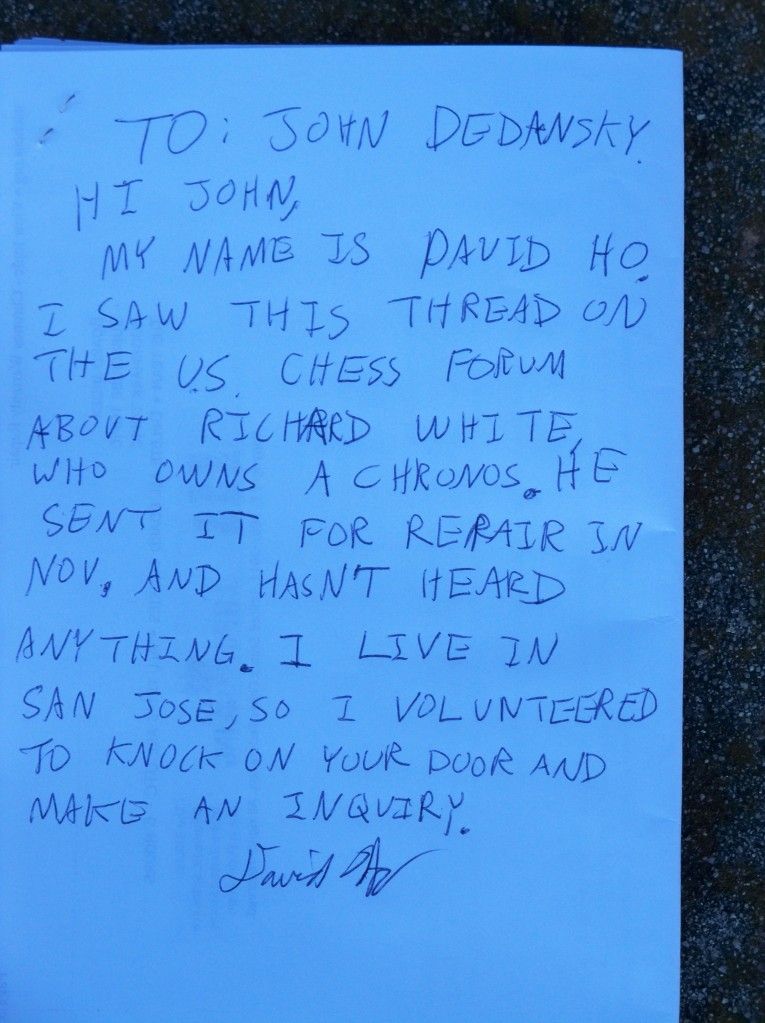 TO: JOHN DEDANSKY.
HI JOHN,
MY NAME IS DAVID HO.
I SAW THIS THREAD ON
THE U.S. CHESS FORUM
ABOUT RICHARD WHITE,
WHO OWNS A CHRONOS. HE
SENT IT FOR REPAIR IN
NOV, AND HASN'T HEARD
ANYTHING. I LIVE IN
SAN JOSE, SO I VOLUNTEERED
TO KNOCK ON YOUR DOOR AND
MAKE AN INQUIRY.
David Ho